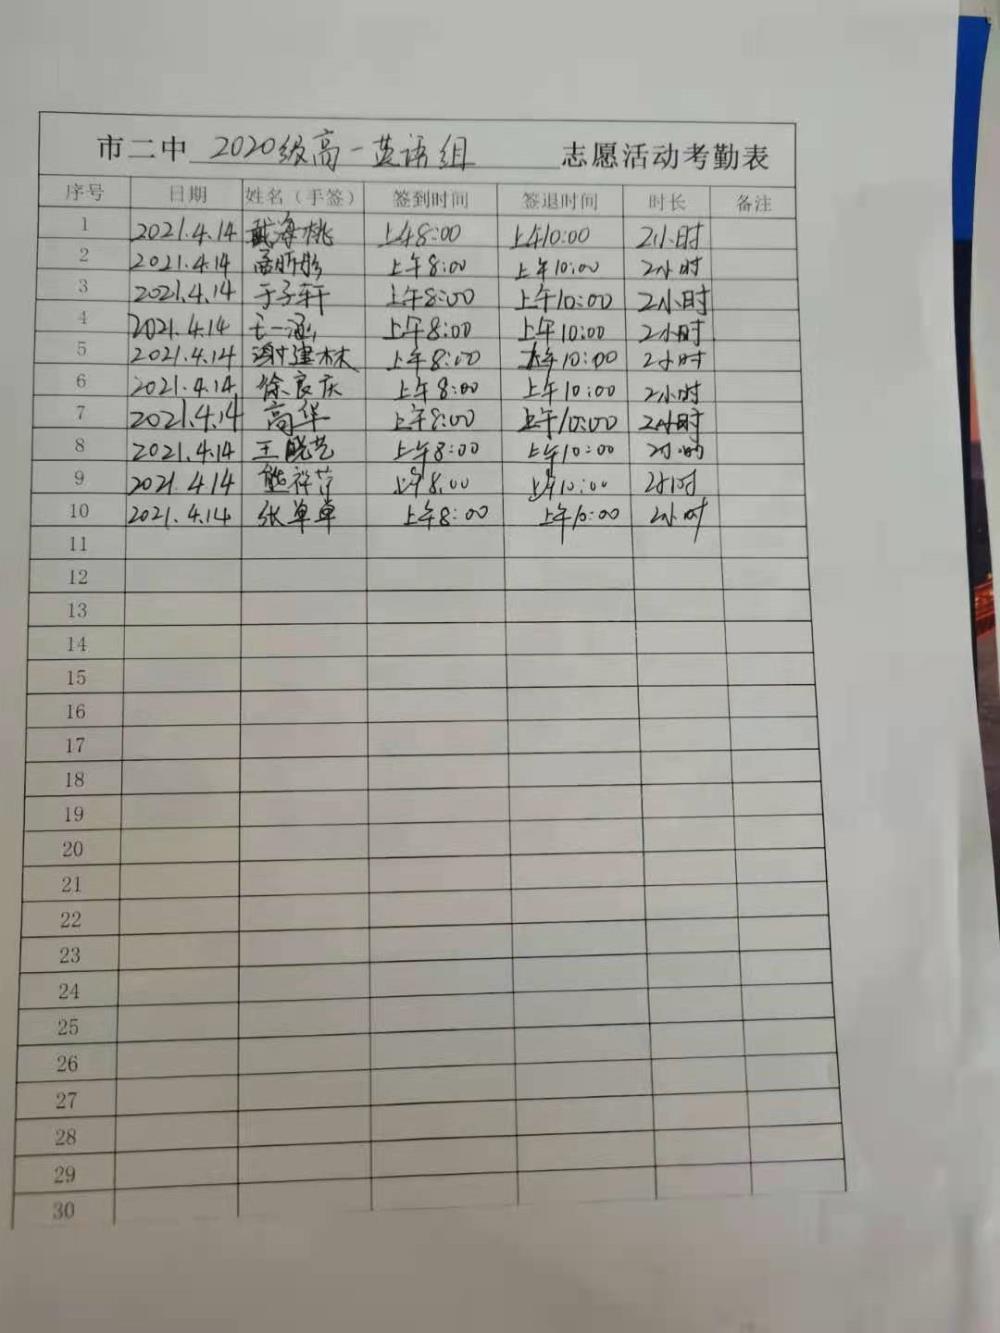 市二中 2020级高一英语组 志愿活动考勤表
序号 日期 姓名（手签） 签到时间 签退时间 时长 备注
1 2021.4.14 戴海桃 上午8:00 上午10:00 2小时
2 2021.4.14 孟昕彤 上午8:00 上午10:00 2小时
3 2021.4.14 于子轩 上午8:00 上午10:00 2小时
4 2021.4.14 王一涵 上午8:00 上午10:00 2小时
5 2021.4.14 谢建林 上午8:00 上午10:00 2小时
6 2021.4.14 徐良庆 上午8:00 上午10:00 2小时
7 2021.4.14 高华 上午8:00 上午10:00 2小时
8 2021.4.14 王晓艺 上午8:00 上午10:00 2小时
9 2021.4.14 熊祥萍 上午8:00 上午10:00 2小时
10 2021.4.14 张单单 上午8:00 上午10:00 2小时
11
12
13
14
15
16
17
18
19
20
21
22
23
24
25
26
27
28
29
30